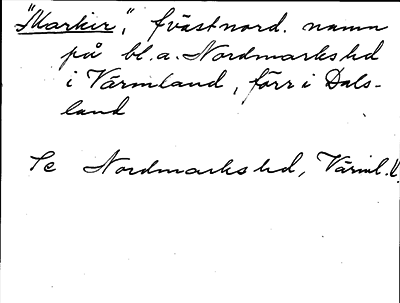 "Markir", fvästnord. namn
på bl.a. Nordmarks hd
i Värmland, förr i Dals-
land
Se Nordmarks hd, Värml.